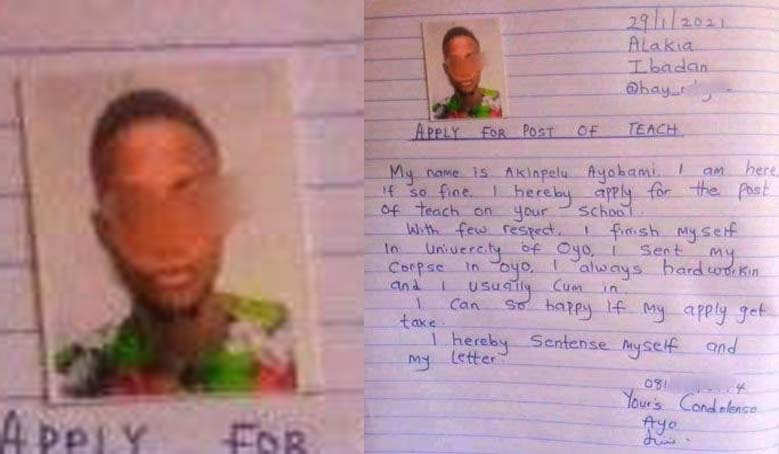 APPLY FOR
29/1/2021
Alakia
Ibadan
@bay_
APPLY FOR POST OF TEACH
My name is Akinpelu Ayobami. I am here
if so fine. I hereby apply for the post
of teach on your school.
With few respect. I finish myself
in Univercity of Oyo. I sent my
Corpse in oyo. I always hardworkin
and I usually Cum in
I can so happy if my apply get
take.
I hereby Sentense Myself and
my letter.
081 4
Your's Condolense
Ayo